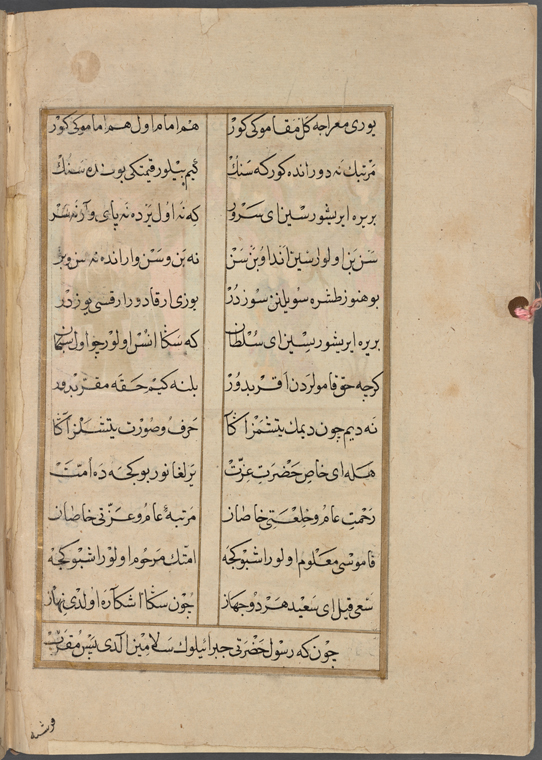 یوری معراجه کل مقاموکی کور هم امام اول هم اماموکی کور
مرتبك نه دورانده کورکه سنك کیم بیلور قیمتکی بونده سنك
بریره ایریشورسین ای سرور که نه اول یرده نه پای وار نه سر
سن بن اولورسین انداوبن سن نه بن وسن وار انده نه سن وبز
بوهنوز طشره سویلنن سوزدر یوزی ارقادور ارقسی یوزدر
بریره ایریشورسین ای سلطان که سکا انس اولور چو اول سبحان
کرچه حق قامولردن اقربدور بلنه کیم حقه مقربدور
نه دیم چون دیمك یتشمز اکا حرف و صورت یتشلمز اکا
هله ای خاص حضرت عزت یرلغانور بوکجه ده امت
رحمت عام و خلعتی خاصان مرتبهٔ عام و عزتی خاصان
قاموسی معلوم اولور اشبوکجه امتك مرحوم اولور اشبوکجه
سعی قیل ای سعید هر دو جهان چون سکا اشکاره اولدی نهان
چون که رسول حضرتی جبرائیلوك سلامین الدی پس مقرب
فرشته